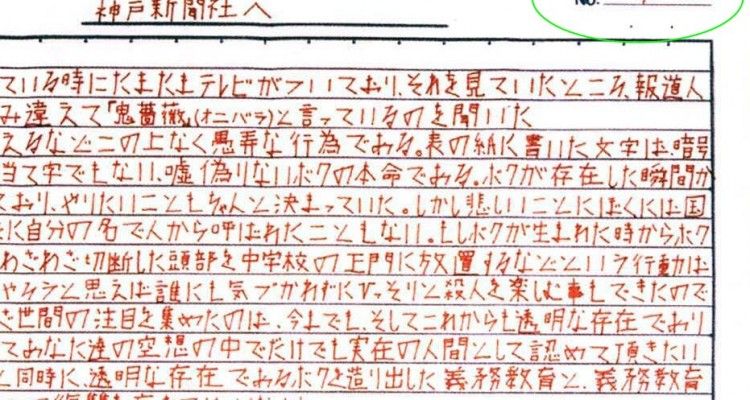 神戸新聞社へ
No.
ている時にたまたまテレビがついており、それを見ていたところ、報道人
み違えて「鬼薔薇」(オニバラ)と言っているのを聞いた
えるなどこの上なく愚弄な行為である。表の紙に書いた文字は、暗号
当て字でもない、嘘偽りないボクの本命である。ボクが存在した瞬間か
ており、やりたいこともちゃんと決まっていた。しかし悲しいことにぼくには国
に自分の名で人から呼ばれたこともない。もしボクが生まれた時からボク
わざわざ切断した頭部を中学校の正門に放置するなどという行動は
やろうと思えば誰にも気づかれずにひっそりと殺人を楽しむ事もできたので
世間の注目を集めたのは、今までも、そしてこれからも透明な存在であり
てあなた達の空想の中でだけでも実在の人間として認めて頂きたい
と同時に、透明な存在であるボクを造り出した義務教育と、義務教育